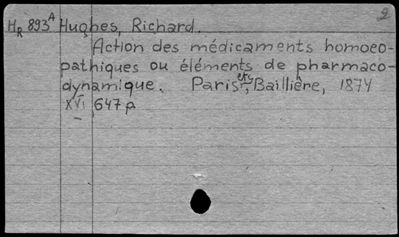 2
HR 893A Hughes, Richard.
Action des médicaments homoeo-
pathiques ou éléments de pharmaco-
dynamique. Paris etc., Baillière, 1874
XVI 647 p